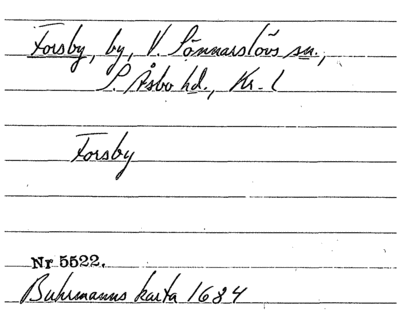 Forsby, by, V. Sönnarslövs sn.,
S. Åsbo hd., Kr. l
Forsby
Nr 5522.
Buhrmanns karta 1684